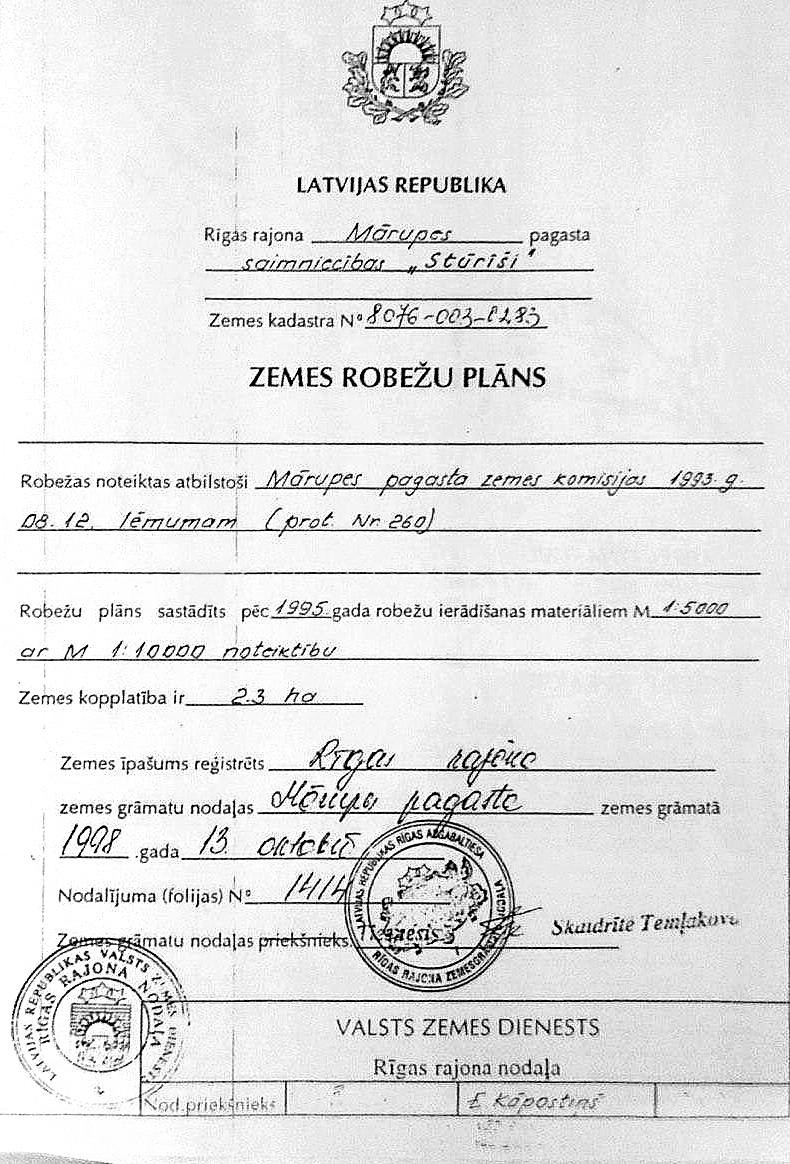 LATVIJAS REPUBLIKA
Rīgas rajona Mārupes pagasta
saimniecības „Stūrīši"
Zemes kadastra Nº 8076-003-0283
ZEMES ROBEŽU PLĀNS
Robežas noteiktas atbilstoši Mārupes pagasta zemes komisijas 1993. g.
08.12. lēmumam (prot. Nr 260)
Robežu plāns sastādīts pēc 1995. gada robežu ierādīšanas materiāliem M 1:5000
ar M 1:10000 noteiktību
Zemes kopplatība ir 2.3 ha
Zemes īpašums reģistrēts Rīgas rajona
zemes grāmatu nodaļas Mārupes pagasta zemes grāmatā
1998 .gada 13. oktobrī
Nodalījuma (folijas) Nº 1414
LATVIJAS REPUBLIKAS RĪGAS APGABALTIESA
RĪGAS RAJONA ZEMESGRĀMATU NODAĻA
Zemes grāmatu nodaļas priekšnieks Tiesnesis Skaidrīte Temļakova
LATVIJAS REPUBLIKAS VALSTS ZEMES DIENESTS
RĪGAS RAJONA NODAĻA
VALSTS ZEMES DIENESTS
Rīgas rajona nodaļa
Nod.priekšnieks E Kāpostiņš